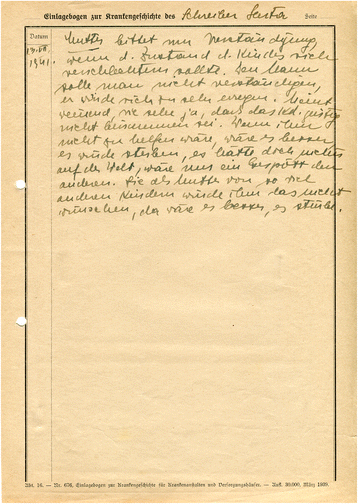 Einlagebogen zur Krankengeschichte des Schreiber Seite
Datum
1941.
Mutter bittet um Verständigung,
wenn d. Zustand d. Kindes sich
verschlechtern sollte. Den Mann
solle man nicht verständigen,
er würde sich zu sehr erregen. Meint
weinend, sie sehe ja, dass das Kd. geistig
nicht beisammen sei. Wenn ihm
nicht zu helfen wäre, wäre es besser
es würde sterben, es hätte doch nichts
auf der Welt, wäre nur ein Gespött der
anderen. Sie als Mutter von so viel
anderen Kindern würde ihm das nicht
wünschen, da wäre es besser, es stürbe.
Nr. 676, Einlagebogen zur Krankengeschichte für Krankenanstalten und Versorgungshäuser. — Aufl. 30.000, März 1939.